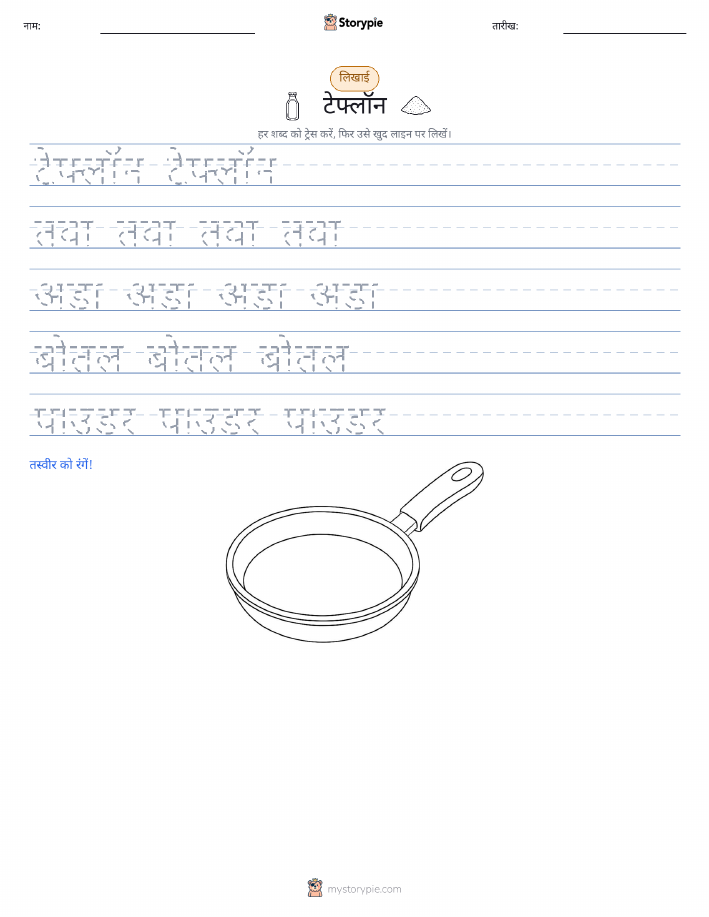 नाम:
Storypie
तारीख:
लिखाई
टेफ्लॉन
हर शब्द को ट्रेस करें, फिर उसे खुद लाइन पर लिखें।
टेफ्लॉन टेफ्लॉन
तवा तवा तवा तवा
अडा अडा अडा अडा
बोतल बोतल बोतल
पाउडर पाउडर पाउडर
तस्वीर को रंगें!
mystorypie.com